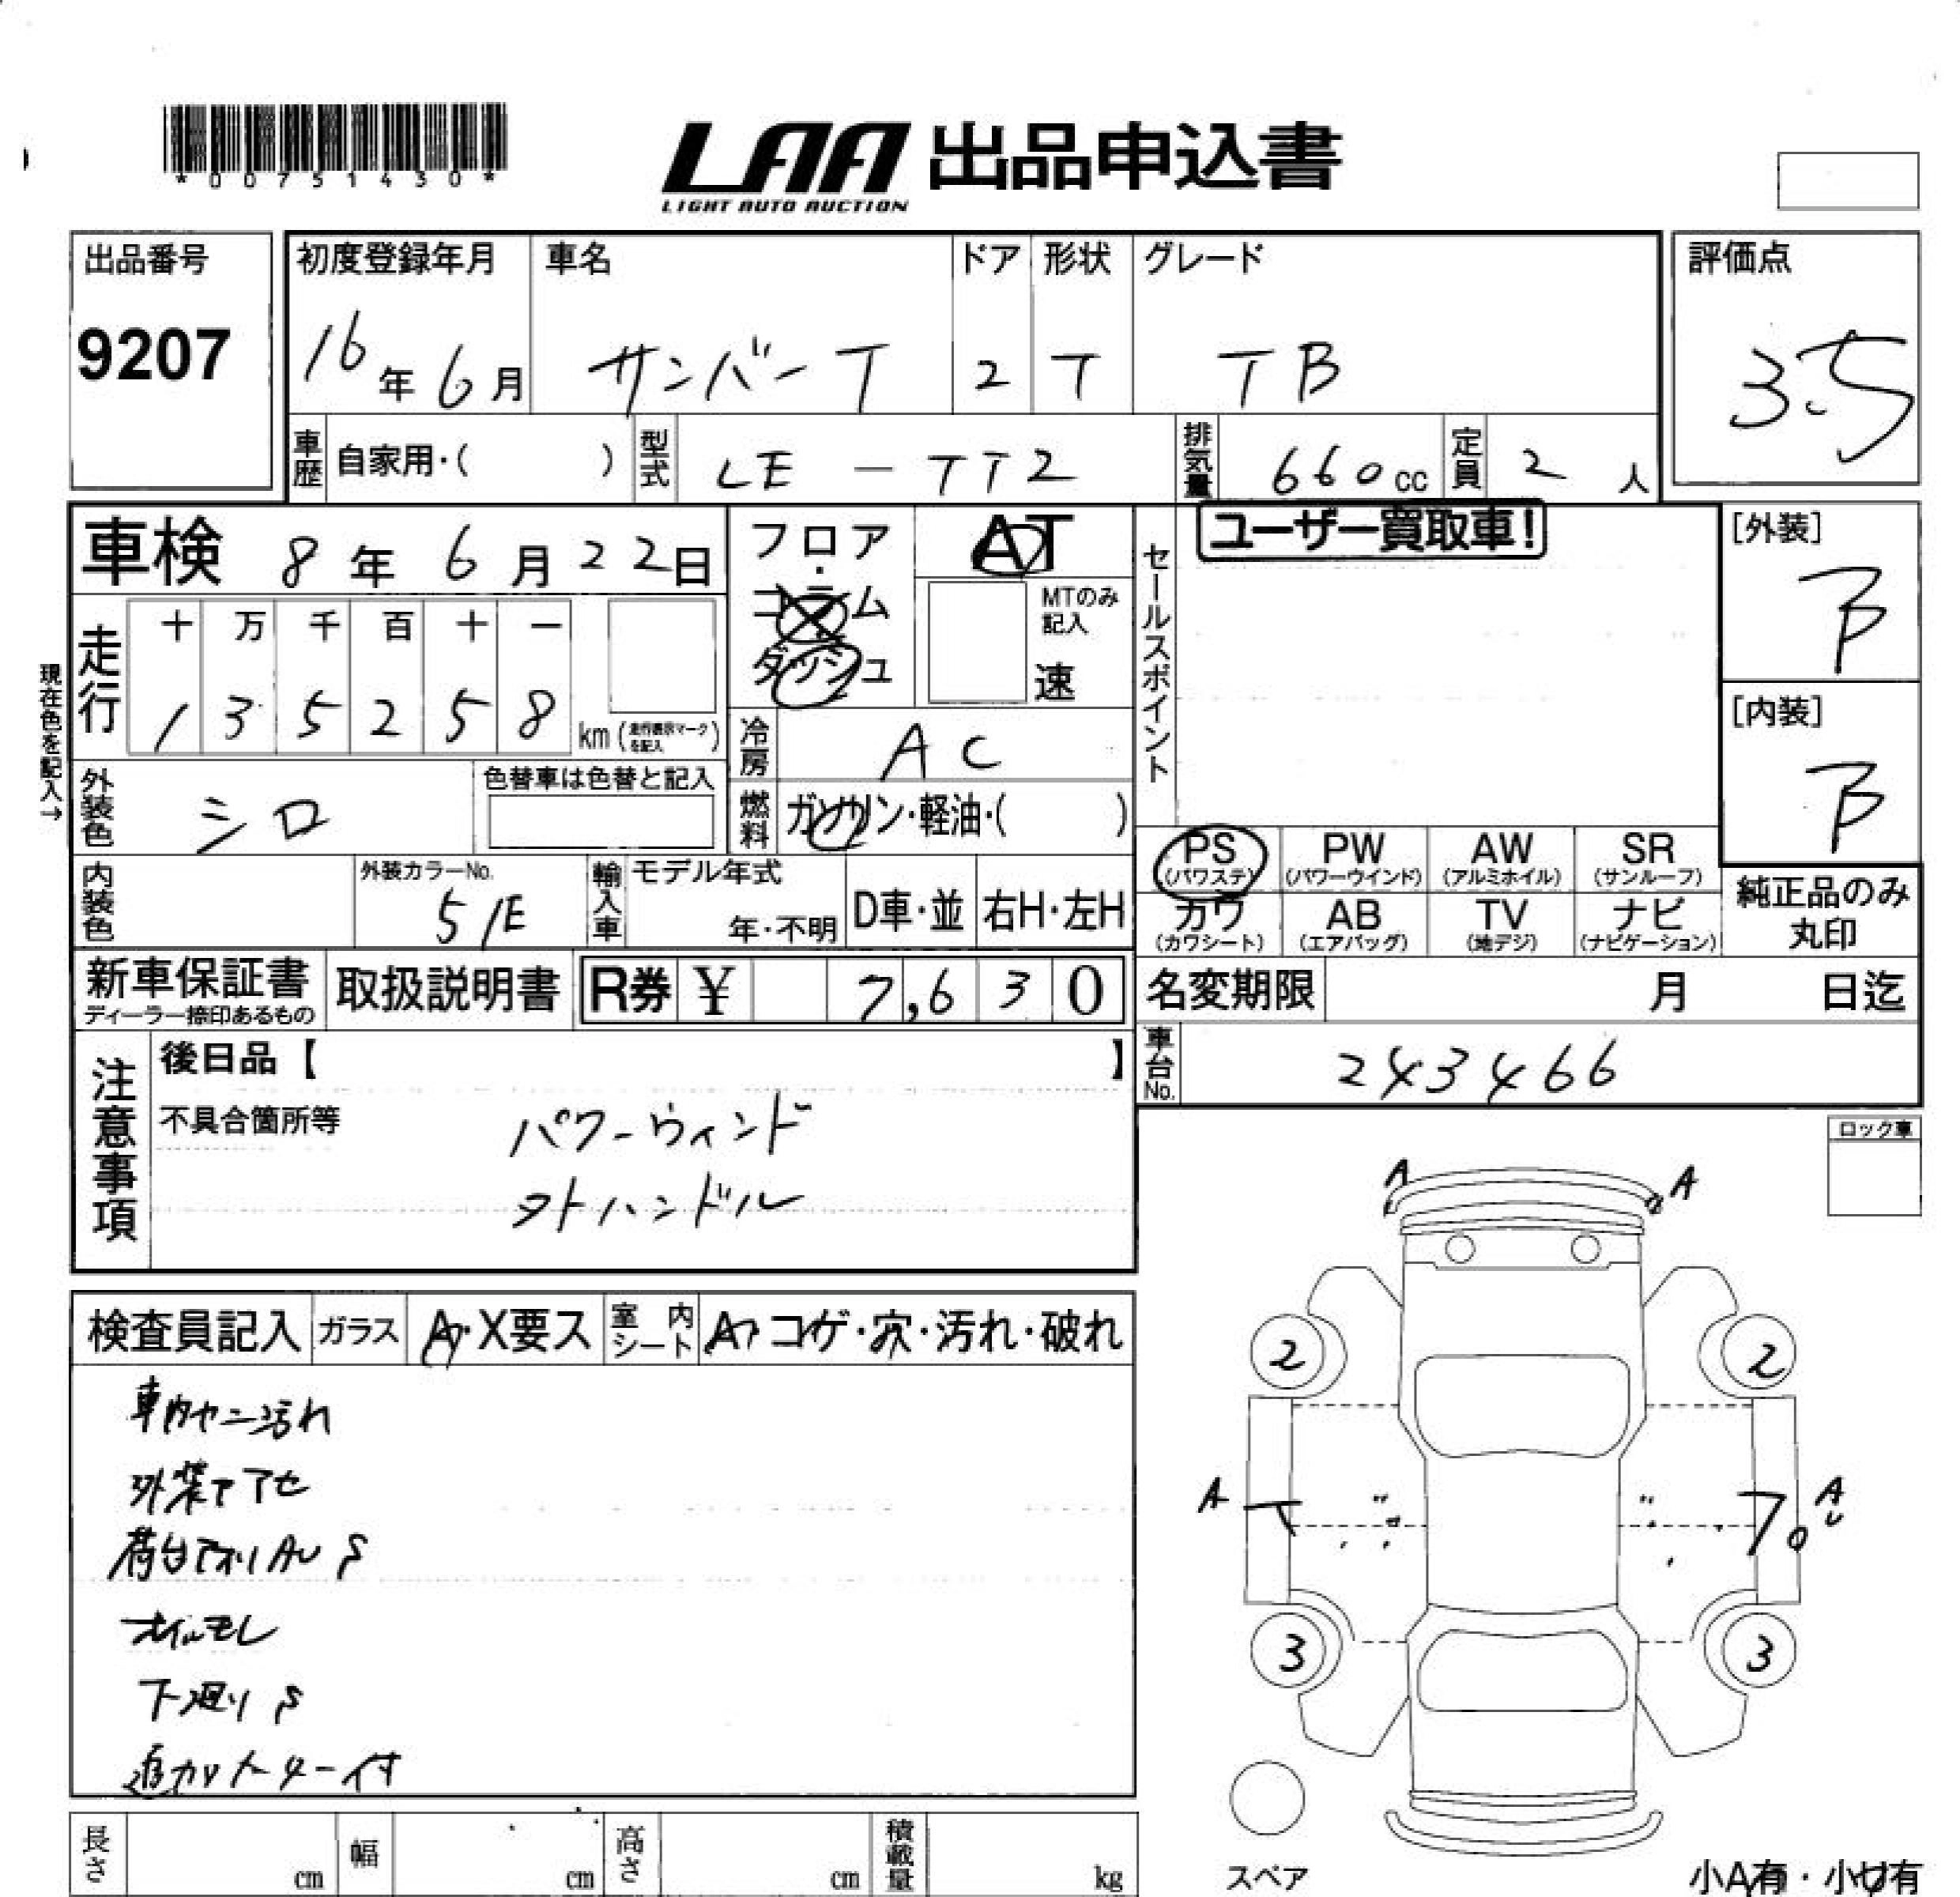 *00751430*
LAA 出品申込書
LIGHT AUTO AUCTION
出品番号
9207
初度登録年月
16年6月
車名
サンバーT
ドア
2
形状
T
グレード
TB
評価点
3.5
車歴 自家用・( )
型式 LE-TT2
排気量 660cc
定員 2人
車検 8年6月22日
走行
十 万 千 百 十 一
1 3 5 2 5 8 km
(走行表示マークを記入)
現在色を記入→
フロア・コラム
ダッシュ
AT
MTのみ記入
速
冷房 AC
燃料 ガソリン・軽油・( )
セールスポイント
ユーザー買取車!
[外装]
B
[内装]
B
外装色 シロ
色替車は色替と記入
内装色
外装カラーNo.
51E
輸入車
モデル年式
年・不明
D車・並
右H・左H
PS (パワステ)
PW (パワーウインド)
AW (アルミホイル)
SR (サンルーフ)
カワ (カワシート)
AB (エアバッグ)
TV (地デジ)
ナビ (ナビゲーション)
純正品のみ
丸印
新車保証書
ディーラー捺印あるもの
取扱説明書
R券 ¥ 7,630
名変期限 月 日迄
車台No. 243466
注意事項
後日品【 】
不具合箇所等
パワーウィンド
タトハンドル
ロック車
検査員記入
ガラス A・X要ス
室内シート A・コゲ・穴・汚れ・破れ
車内ヤニ汚れ
外装色アセ
荷台アオリAU S
オイルモレ
下廻りS
A
A
2
2
A
A
U
3
3
スペア
小A有・小U有
長さ cm
幅 cm
高さ cm
積載量 kg